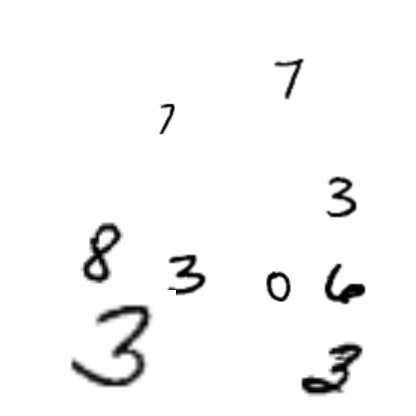 7
7
3
8 3 0 6
3 3